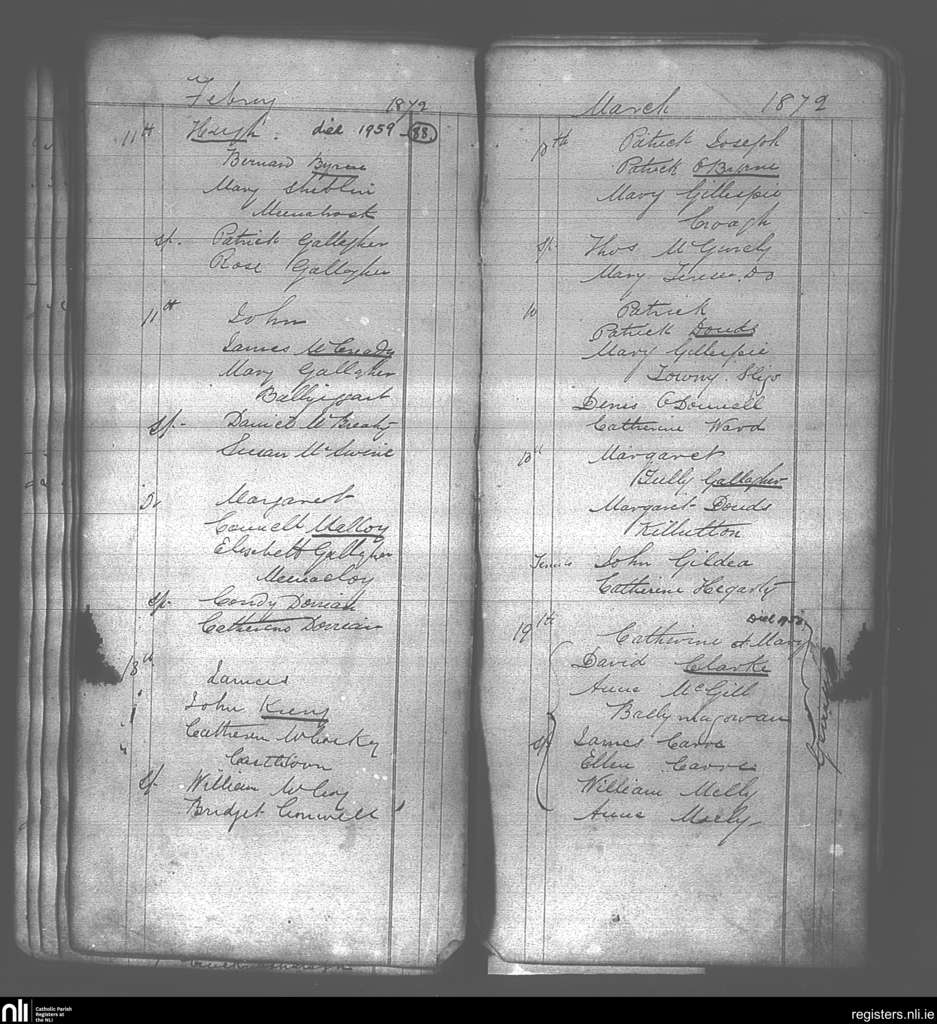 Febry 1872
11th Hugh. died 1959 88.
Bernard Byrne
Mary
sp. Patrick Gallagher
Rose Gallagher
11th John
James McCready
Mary Gallagher
Sp. Daniel McBrearty
Susan McSwine
Do Margaret
Connell Malloy
Elisebett Gallagher
Meenacloy
Sp. Condy Dorrian
Catherine Dorrian
18th James
John
Catherine McCosky
Casttown
Sp. William McCloy
Bridget Conwell
March 1872
10th Patrick Joseph
Patrick O Byrne
Mary Gillespie
Croagh
Sp. Thos McGurely
Mary Do
10 Patrick
Patrick Douds
Mary Gillespie
Towny. Sligo
Denis O Donnell
Catherine Ward
10th Margaret
Gallagher
Margaret Douds
John Gildea
Catherine Hegarty
Died
19th Catherine & Mary
David Clarke
Anne McGill
Ballymagowan
Sp. James Carre
Ellen Carre
William Melly
Anne
nli Catholic Parish
Registers at
the NLI
registers.nli.ie